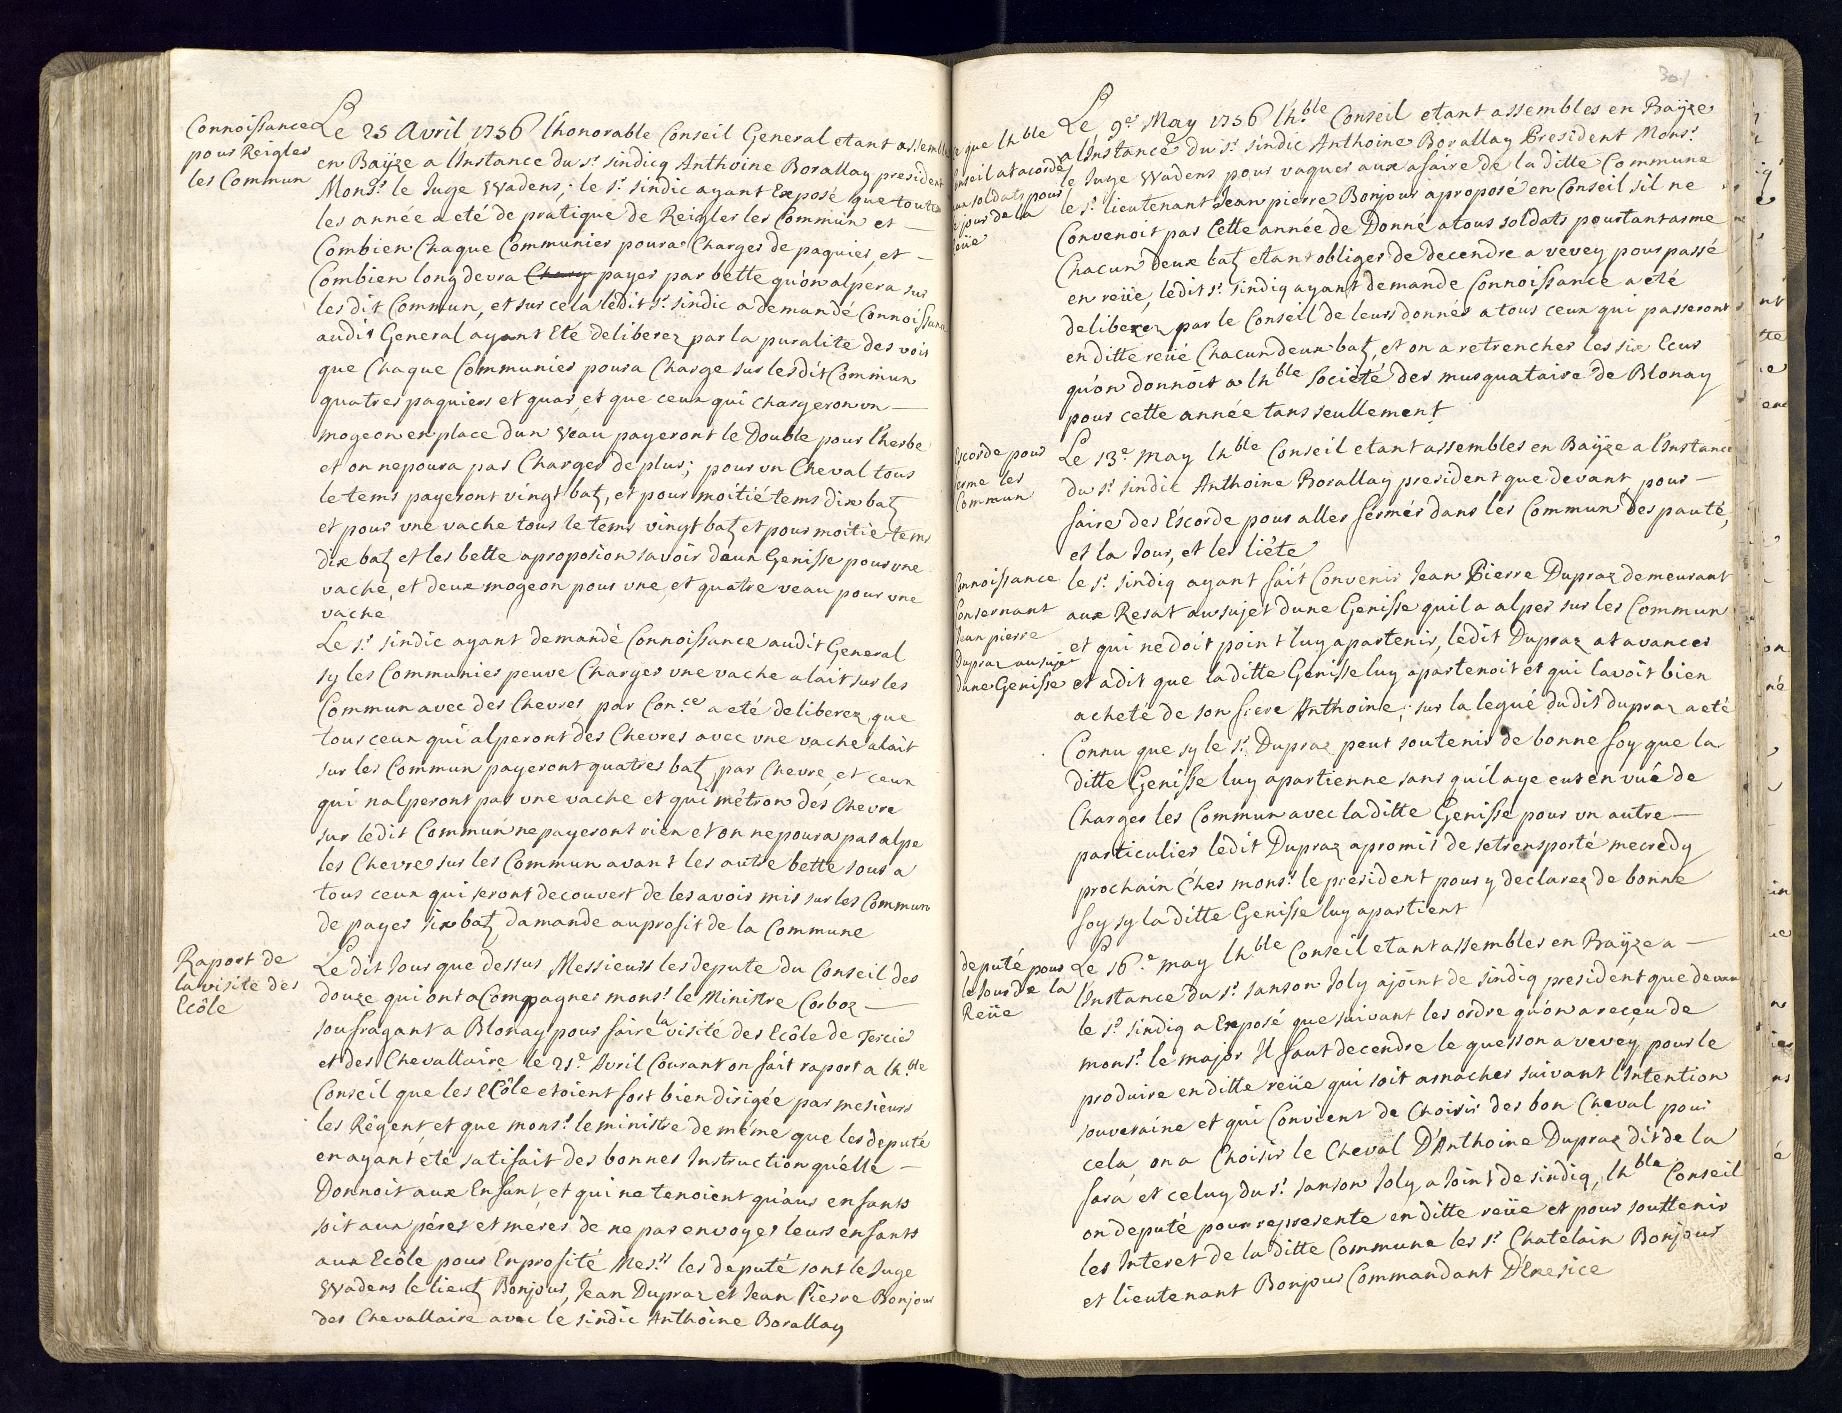 Connoissance
pour Reigler
les Commun
Le 25 Avril 1756 l'honorable Conseil General etant assemblé
en Baÿze a l'Instance du Sr. sindicq Anthoine Borallay president
Monsr. le Juge Wadens; le Sr. sindic ayant Exposé que toute
les année a eté de pratique de Reigler les Commun et —
Combien Chaque Communier poura Charger de paquier, et —
Combien long devra Charg payer par bette qu'on alpera sur
les dit Commun, et sur cela ledit Sr. sindic a demandé Connoissance
audit General ayant Eté deliberez par la puralité des vois
que Chaque Communier poura Charge sur lesdit Commun
quatres paquiers et quar, et que ceux qui Chargeron un —
mogeon en place dun Veau payeront le Double pour l'herbe
et on ne poura pas Charger de plus; pour un Cheval tous
le tems payeront vingt batz, et pour moitié tems dix batz
et pour une vache tous le tems vingt batz et pour moitié tems
dix batz et les bette a proposion savoir deux Genisse pour une
vache, et deux mogeon pour une, et quatre veau pour une
vache
Le Sr. sindic ayant demandé Connoissance audit General
sy les Communier peuve Charger une vache a lait sur les
Commun avec des Chevres par Con.ce a eté deliberez que
tous ceux qui alperont des Chevres avec une vache a lait
sur les Commun payeront quatres batz par Chevre, et ceux
qui nalperont pas une vache et qui métron des Chevre
sur ledit Commun ne payeront rien et on ne poura pas alpe
les Chevres sur les Commun avant les autre bette sous a
tous ceux qui seront decouvert de les avoir mis sur les Commun
de payer six batz damande au profit de la Commune
Raport de
la visite des
Ecôle
Le dit Jour que dessus Messieurs les depute du Conseil des
douze qui ont aCompagner monsr. le Ministre Corboz —
soufragant a Blonay pour faire la visité des Ecôle de Tercier
et des Chevallaire le 21e. Avril Courant on fait raport a lh.ble
Conseil que les eCôle etoient fort bien dirigée par mesieurs
les Régent, et que monsr. le ministre de méme que les deputé
en ayant été satifait des bonnes Instruction qu'elle —
Donnoit aux Enfant, et qui ne tenoient qu'aux enfants
soit aux péres et meres de ne pas envoyer leurs enfants
aux Ecôle pour En profité Mesrs. les deputé sont le Juge
Wadens le lieut Bonjour, Jean Dupraz et Jean Pierre Bonjour
des Chevallaire avec le sindic Anthoine Borallay
301
que lhble
Conseil at acordé
aux soldats pour
jour de la
reüe
Le 9er May 1756 l'h.ble Conseil etant assembles en Baÿze
a l'Instance du Sr. sindic Anthoine Borallay President Monsr.
le Juge Wadens pour vaquer aux afaire de la ditte Commune
le Sr. lieutenant Jean pierre Bonjour a proposé en Conseil sil ne
Convenoit pas Cette année de Donné a tous soldats pourtant arme
Chacun deux batz etant obliger de decendre a vevey pour passé
en reüe, ledit Sr. sindiq ayant demande Connoissance a été
deliberez par le Conseil de leurs donnés a tous ceux qui passeront
en ditte reüe Chacun deux batz, et on a retrencher les six Ecus
qu'on donnoit a lhble Société des musquataire de Blonay
pour cette année tans seullement
Escorde pour
ferme les
Commun
Le 13e may lhble Conseil etant assembles en Baÿze a l'Instance
du Sr. sindic Anthoine Borallay president que devant pour —
faire des Escorde pour aller fermér dans les Commun des pauté,
et la Jour, et les liéte
Connoissance
Consernant
Jean pierre
Dupraz au sujet
dune Genisse
le Sr. sindiq ayant fait Convenir Jean Pierre Dupraz demeurant
aux Resat au sujet dune Genisse quil a alper sur les Commun
et qui ne doit point luy apartenir, ledit Dupraz at avancer
et a dit que la ditte Genisse luy apartenoit et qui lavoit bien
acheté de son frere Anthoine; sur la legué dudit dupraz a eté
Connu que sy le Sr. Dupraz peut soutenir de bonne foy que la
ditte Genisse luy apartienne sans quil aye eut en vuê de
Charger les Commun avec la ditte Genisse pour un autre —
particulier ledit Dupraz a promit de se transporté mecredy
prochain Ches monsr. le president pour y declarez de bonne
foy sy la ditte Genisse luy apartient
deputé pour
le Jour de la
Reüe
Le 16.e may lhble Conseil etant assembles en Baÿze a —
l'Instance du Sr. sanson Joly ajoint de sindiq president que devant
le Sr. sindiq a Exposé que suivant les ordre qu'on a reçeu de
monsr. le major Il faut decendre le quesson a vevey pour le
produire en ditte reüe qui soit arnacher suivant l'Intention
souveraine et qui Convient de Choisir des bon Cheval pour
cela, on a Choisir le Cheval D'Anthoine Dupraz dit de la
fara et celuy du Sr. sanson Joly a Joint de sindiq, lhble Conseil
on deputé pour represente en ditte reüe et pour souttenir
les Interet de la ditte Commune les Sr. Chatelain Bonjour
et lieutenant Bonjour Commandant D'Exersice